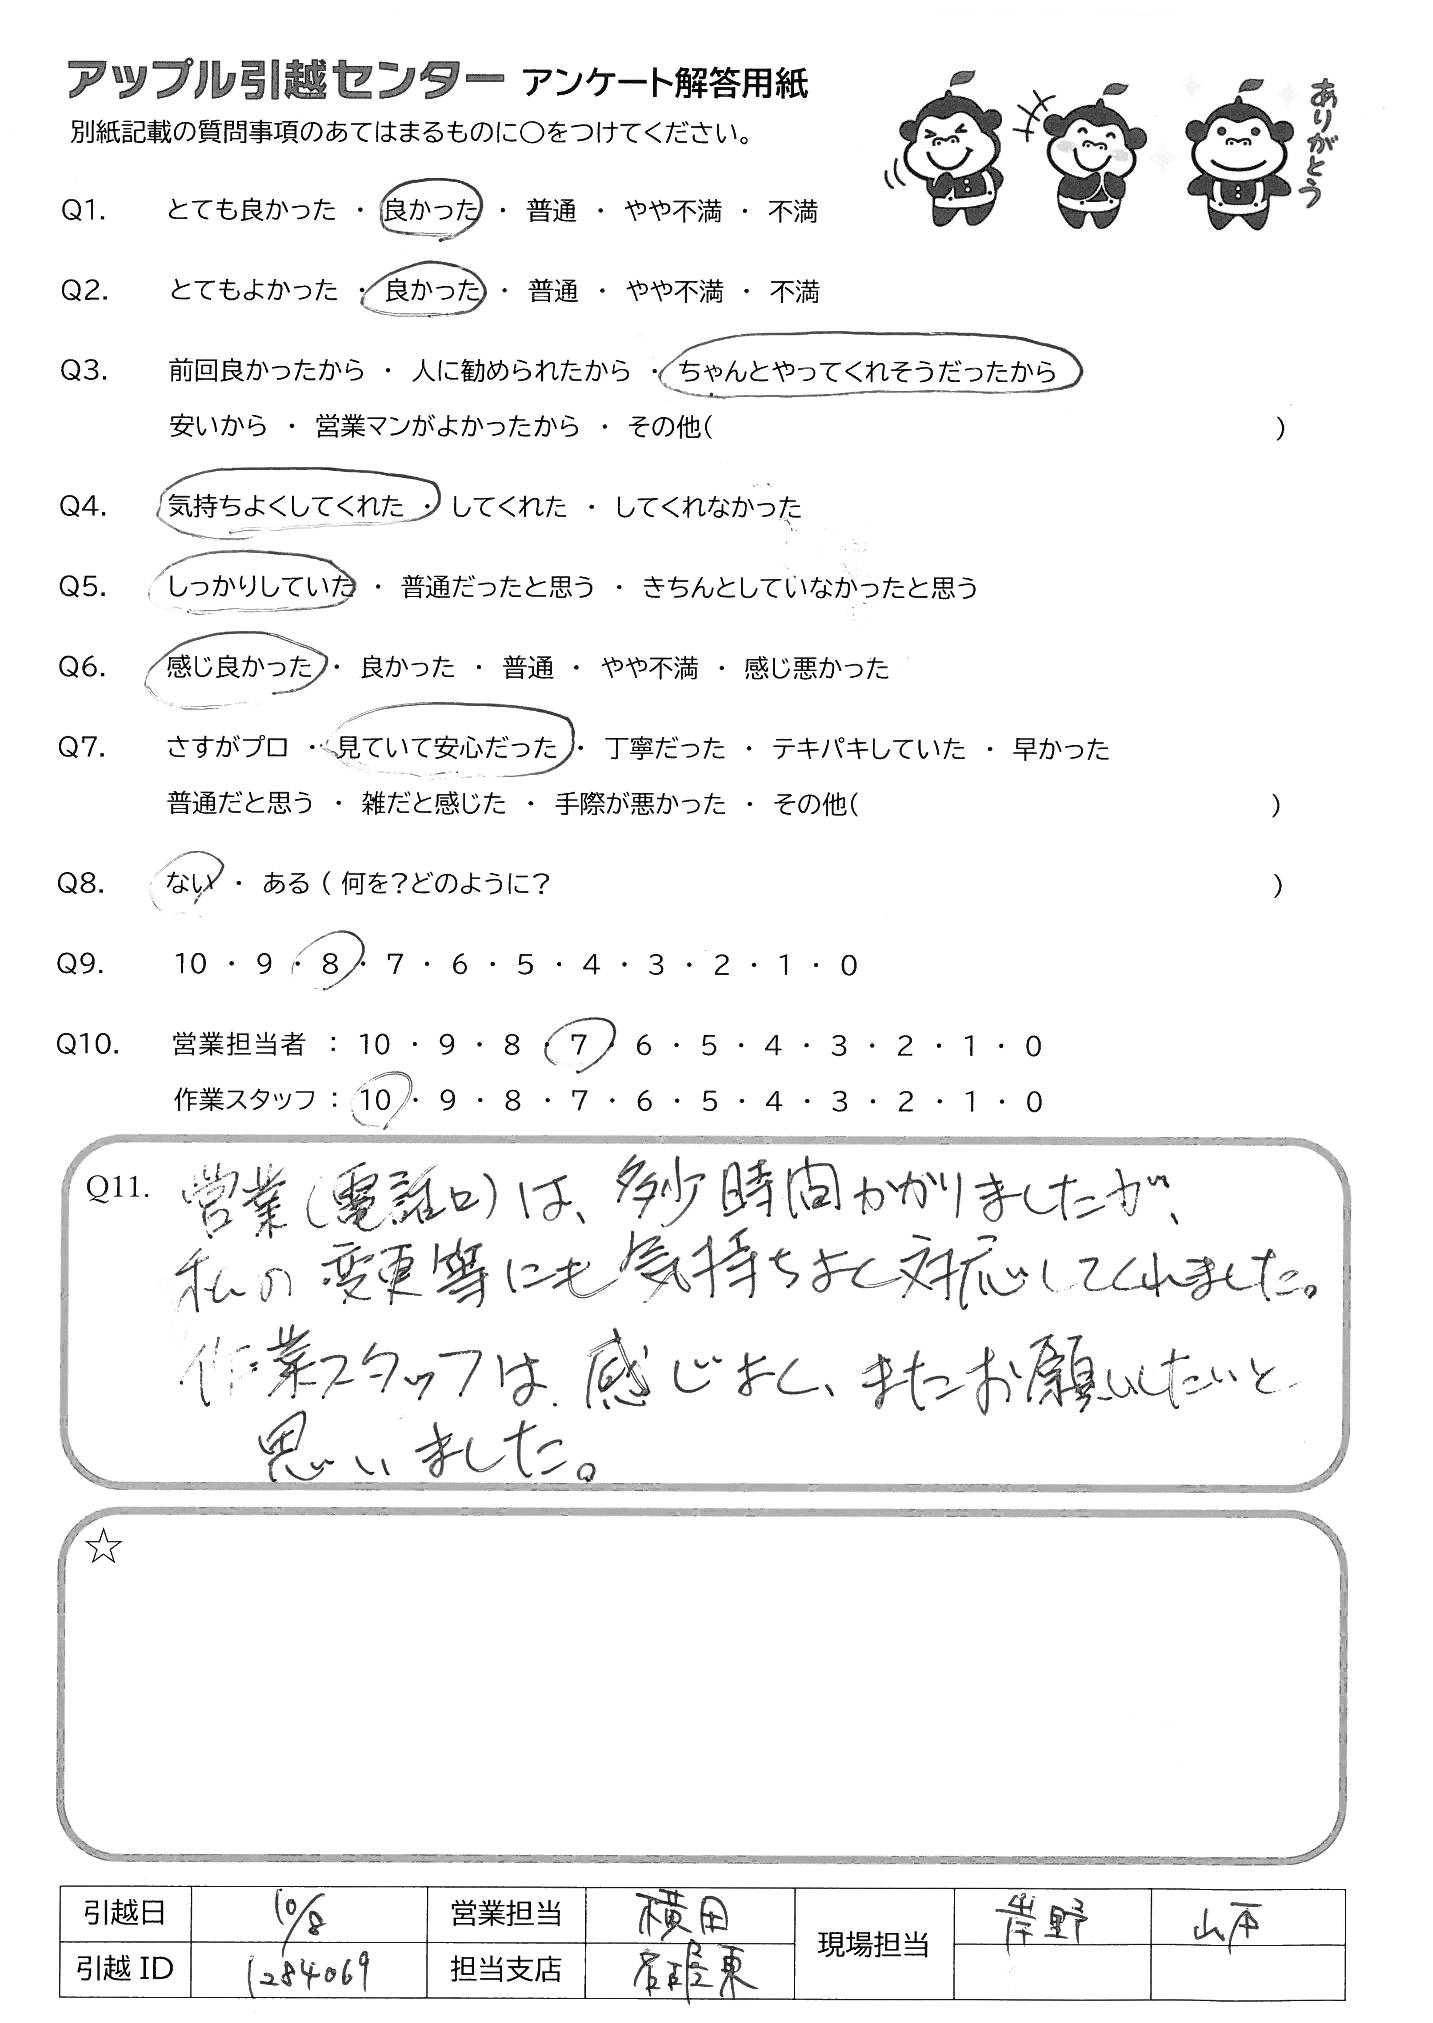 アップル引越センター アンケート解答用紙
別紙記載の質問事項のあてはまるものに〇をつけてください。
ありがとう
Q1. とても良かった ・ 良かった ・ 普通 ・ やや不満 ・ 不満
Q2. とてもよかった ・ 良かった ・ 普通 ・ やや不満 ・ 不満
Q3. 前回良かったから ・ 人に勧められたから ・ ちゃんとやってくれそうだったから
安いから ・ 営業マンがよかったから ・ その他( )
Q4. 気持ちよくしてくれた ・ してくれた ・ してくれなかった
Q5. しっかりしていた ・ 普通だったと思う ・ きちんとしていなかったと思う
Q6. 感じ良かった ・ 良かった ・ 普通 ・ やや不満 ・ 感じ悪かった
Q7. さすがプロ ・ 見ていて安心だった ・ 丁寧だった ・ テキパキしていた ・ 早かった
普通だと思う ・ 雑だと感じた ・ 手際が悪かった ・ その他( )
Q8. ない ・ ある ( 何を?どのように? )
Q9. 10 ・ 9 ・ 8 ・ 7 ・ 6 ・ 5 ・ 4 ・ 3 ・ 2 ・ 1 ・ 0
Q10. 営業担当者 : 10 ・ 9 ・ 8 ・ 7 ・ 6 ・ 5 ・ 4 ・ 3 ・ 2 ・ 1 ・ 0
作業スタッフ : 10 ・ 9 ・ 8 ・ 7 ・ 6 ・ 5 ・ 4 ・ 3 ・ 2 ・ 1 ・ 0
Q11. 営業(電話口)は、多少時間かかりましたが、
私の変更等にも気持ちよく対応してくれました。
作業スタッフは、感じよく、またお願いしたいと
思いました。
☆
引越日 10/8 営業担当 横田 現場担当 岸野 山戸
引越ID 1284069 担当支店 名古屋東